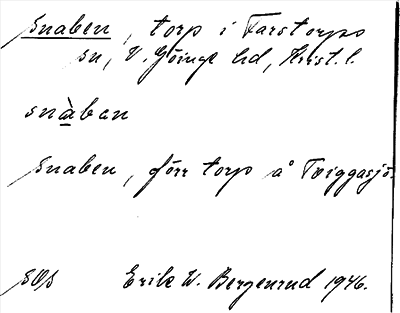 Snaben, torp i Farstorps
sn, V. Göinge hd, Krist. l.
snàban
Snaben, förr torp å Tviggasjö.
SOS Erik W. Bergenrud 1946.